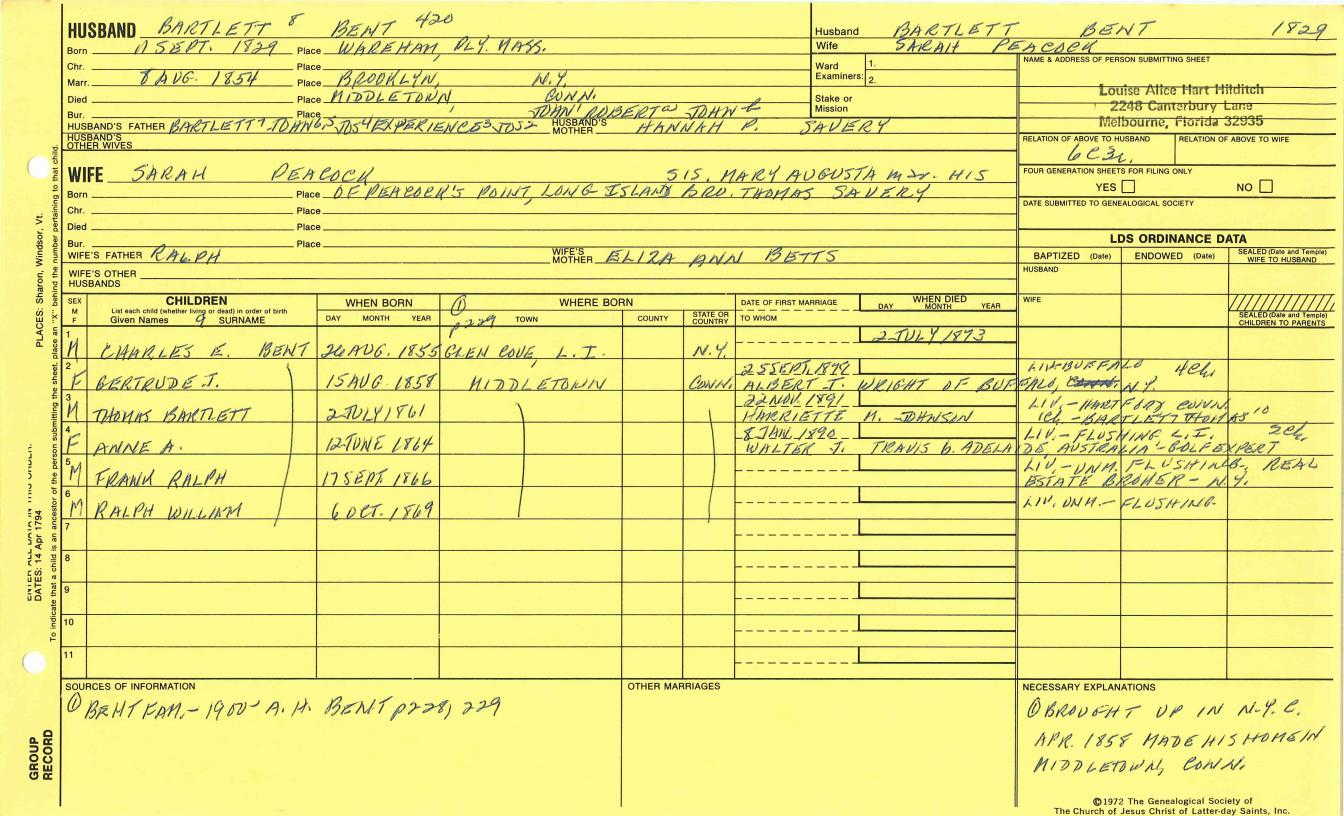 HUSBAND BARTLETT 8 BENT 420
Born 11 SEPT. 1829 Place WAREHAM, PLY. MASS.
Chr. Place
Marr. 8 AUG. 1854 Place BROOKLYN, N.Y.
Died Place MIDDLETOWN, CONN.
Bur. Place JOHN ROBERT JOHN
HUSBAND'S FATHER BARTLETT 7 JOHN 6 5 JOS 4 EXPERIENCE 3 JOS 2 HUSBAND'S MOTHER HANNAH P. SAVERY
HUSBAND'S OTHER WIVES
Husband BARTLETT BENT 1829
Wife SARAH PEACOCK
Ward Examiners: 1.
2.
Stake or Mission
NAME & ADDRESS OF PERSON SUBMITTING SHEET
Louise Alice Hart Hilditch
2248 Canterbury Lane
Melbourne, Florida 32935
RELATION OF ABOVE TO HUSBAND RELATION OF ABOVE TO WIFE
6C3r.
FOUR GENERATION SHEETS FOR FILING ONLY
YES NO
DATE SUBMITTED TO GENEALOGICAL SOCIETY
WIFE SARAH PEACOCK SIS. MARY AUGUSTA mar. HIS
Born Place OF PEACOCK'S POINT, LONG ISLAND BRO. THOMAS SAVERY
Chr. Place
Died Place
Bur. Place
WIFE'S FATHER RALPH WIFE'S MOTHER ELIZA ANN BETTS
WIFE'S OTHER HUSBANDS
LDS ORDINANCE DATA
BAPTIZED (Date) ENDOWED (Date) SEALED (Date and Temple) WIFE TO HUSBAND
HUSBAND
WIFE
SEALED (Date and Temple) CHILDREN TO PARENTS
SEX M F CHILDREN List each child (whether living or dead) in order of birth Given Names 9 SURNAME
WHEN BORN DAY MONTH YEAR
① p229 WHERE BORN TOWN COUNTY STATE OR COUNTRY
DATE OF FIRST MARRIAGE TO WHOM
WHEN DIED DAY MONTH YEAR
1 M CHARLES E. BENT 26 AUG. 1855 GLEN COVE, L.I. N.Y. 2 JULY 1873
2 F GERTRUDE J. 15 AUG. 1858 MIDDLETOWN CONN. 25 SEPT. ALBERT J. WRIGHT OF BUFFALO, N.Y. LIV-BUFFALO 4ch.
3 M THOMAS BARTLETT 2 JULY 1861 22 NOV. 1891 HARRIETTE M. JOHNSON LIV.-HARTFORD CONN. 1ch.-BARTLETT THOMAS 10
4 F ANNE A. 12 JUNE 1864 8 JAN 1890 WALTER J. TRAVIS b. ADELAIDE AUSTRALIA-GOLF EXPERT LIV.-FLUSHING L.I. 2ch.
5 M FRANK RALPH 17 SEPT. 1866 LIV.-UNM. FLUSHING, REAL ESTATE BROKER-N.Y.
6 M RALPH WILLIAM 6 OCT. 1869 LIV. UNM.-FLUSHING.
7
8
9
10
11
SOURCES OF INFORMATION
① BENT FAM.-1900-A.H. BENT p228, 229
OTHER MARRIAGES
NECESSARY EXPLANATIONS
① BROUGHT UP IN N.Y.C.
APR. 1858 MADE HIS HOME IN
MIDDLETOWN, CONN.
©1972 The Genealogical Society of
The Church of Jesus Christ of Latter-day Saints, Inc.
PLACES: Sharon, Windsor, Vt.
To indicate that a child is an ancestor of the person submitting the sheet, place an "X" behind the number pertaining to that child.
ENTER ALL DATA IN THIS ORDER:
DATES: 14 Apr 1794
GROUP RECORD